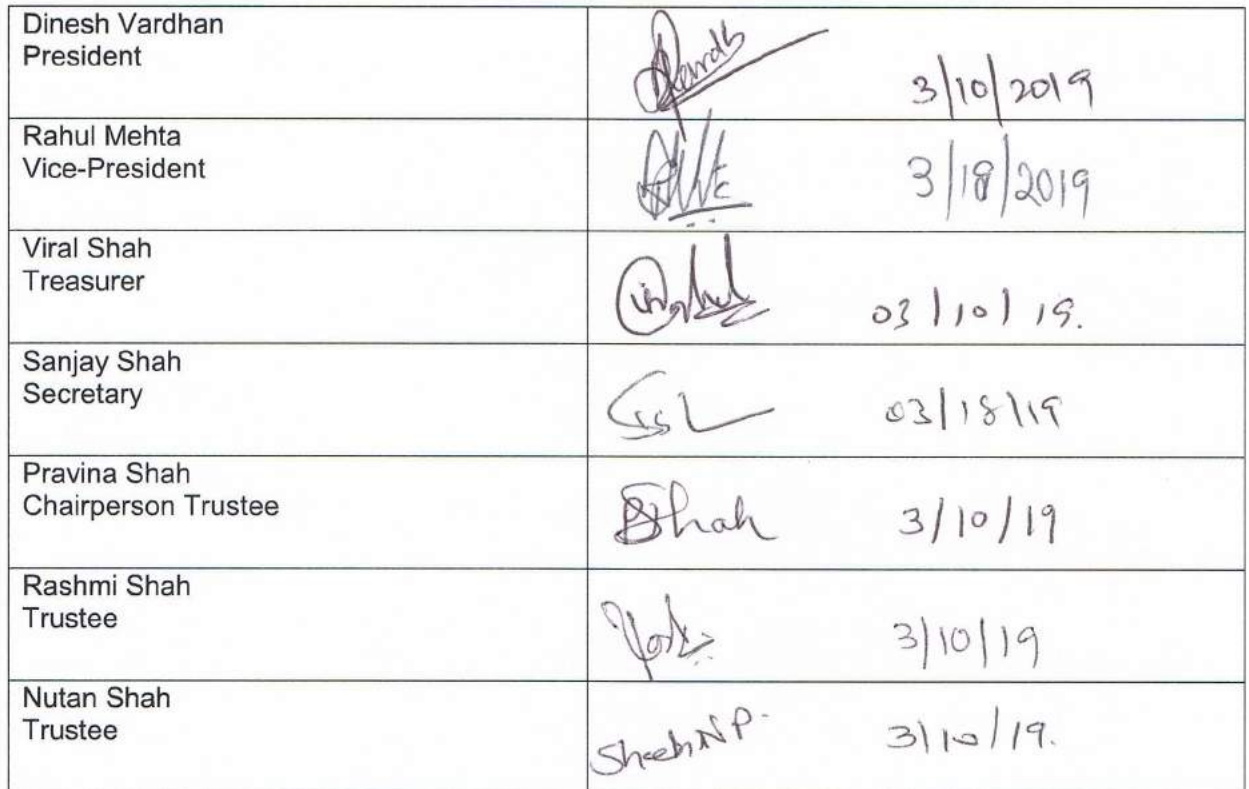 Dinesh Vardhan
President
3/10/2019
Rahul Mehta
Vice-President
3/18/2019
Viral Shah
Treasurer
03/10/19.
Sanjay Shah
Secretary
03/18/19
Pravina Shah
Chairperson Trustee
PShah 3/10/19
Rashmi Shah
Trustee
3/10/19
Nutan Shah
Trustee
Shah N P. 3/10/19.